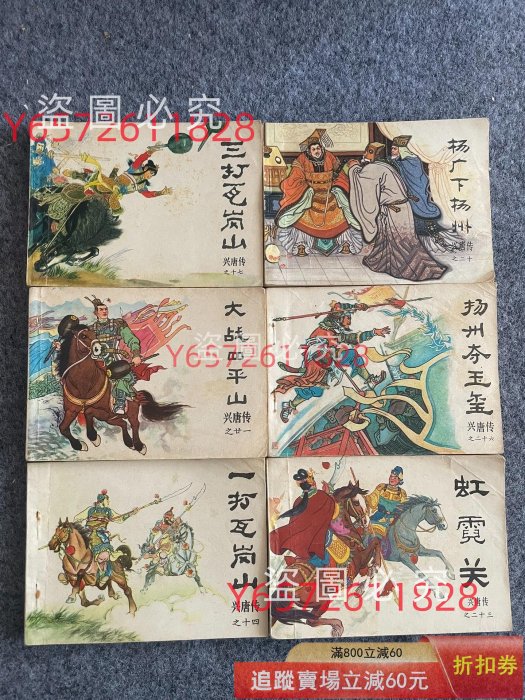 盜圖必究
Y6572611828
三打瓦岗山
兴唐传
之十七
杨广下扬州
兴唐传
之二十
大战四平山
兴唐传
之廿一
盜圖必究
Y6572611828
扬州夺玉玺
兴唐传
之二十六
一打瓦岗山
兴唐传
之十四
虹霓关
兴唐传
之二十三
盜圖必究
Y6572611828
滿800立減60
追蹤賣場立減60元
折扣券